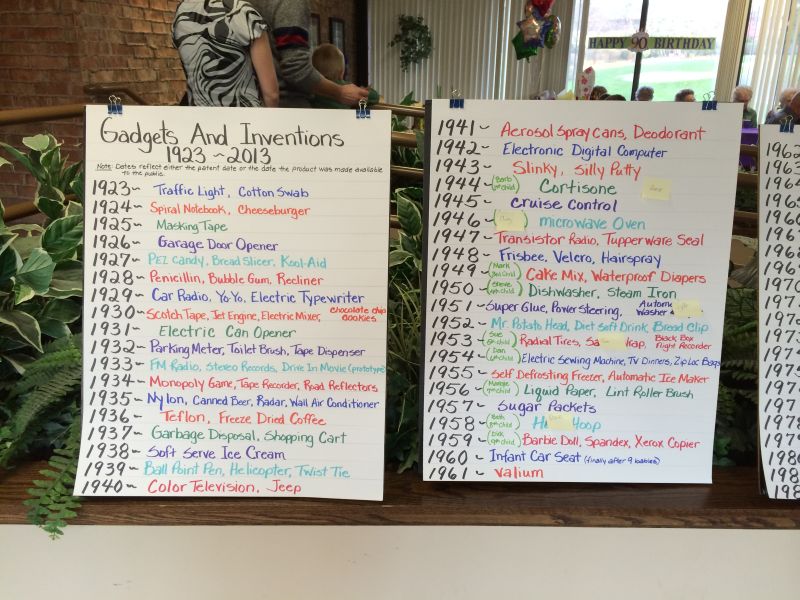 HAPPY 90 BIRTHDAY
Gadgets And Inventions
1923~2013
Note: Dates reflect either the patent date or the date the product was made available
to the public.
1923~ Traffic Light, Cotton Swab
1924~ Spiral Notebook, Cheeseburger
1925~ Masking Tape
1926~ Garage Door Opener
1927~ PEZ Candy, Bread Slicer, Kool-Aid
1928~ Penicillin, Bubble Gum, Recliner
1929~ Car Radio, YoYo, Electric Typewriter
1930~ Scotch Tape, Jet Engine, Electric Mixer, chocolate chip cookies
1931~ Electric Can Opener
1932~ Parking Meter, Toilet Brush, Tape Dispenser
1933~ FM Radio, Stereo Records, Drive In Movie (prototype)
1934~ Monopoly Game, Tape Recorder, Road Reflectors
1935~ Nylon, Canned Beer, Radar, Wall Air Conditioner
1936~ Teflon, Freeze Dried Coffee
1937~ Garbage Disposal, Shopping Cart
1938~ Soft Serve Ice Cream
1939~ Ball Point Pen, Helicopter, Twist Tie
1940~ Color Television, Jeep
1941~ Aerosol Spray Cans, Deodorant
1942~ Electronic Digital Computer
1943~ Slinky, Silly Putty
1944~ (Barb 1st child) Cortisone
1945~ Cruise Control
1946~ microwave Oven
1947~ Transistor Radio, Tupperware Seal
1948~ Frisbee, Velcro, Hairspray
1949~ (Mark 3rd child) Cake Mix, Waterproof Diapers
1950~ (Steve 4th child) Dishwasher, Steam Iron
1951~ Super Glue, Power Steering, Automatic Washer
1952~ Mr. Potato Head, Diet Soft Drink, Bread Clip
1953~ (Sue 5th child) Radial Tires, Black Box Flight Recorder
1954~ (Dan 6th child) Electric Sewing Machine, TV Dinners, Zip Loc Bags
1955~ Self Defrosting Freezer, Automatic Ice Maker
1956~ (7th child) Liquid Paper, Lint Roller Brush
1957~ Sugar Packets
1958~ (Beth 8th child) Hoop
1959~ (Dick 9th child) Barbie Doll, Spandex, Xerox Copier
1960~ Infant Car Seat (finally after 9 babies)
1961~ Valium